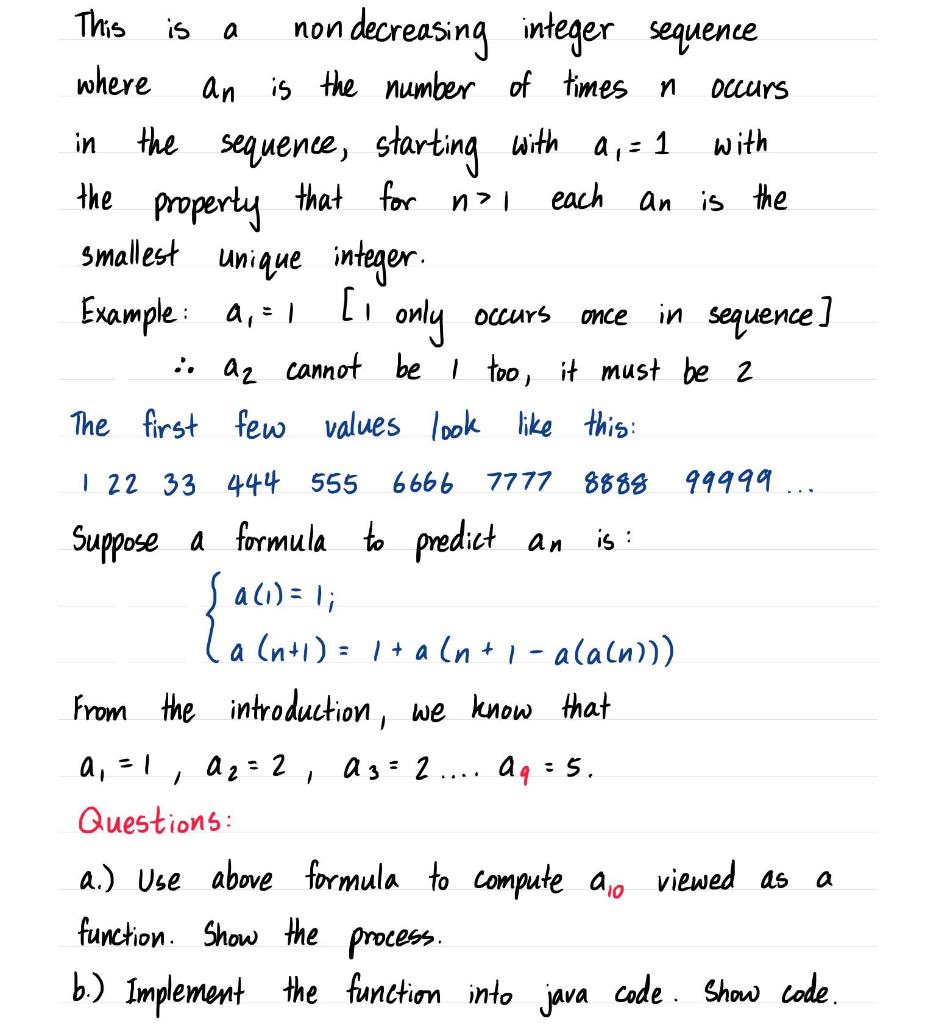 This is a nondecreasing integer sequence
where an is the number of times n occurs
in the sequence, starting with a₁ = 1 with
the property that for n > 1 each an is the
smallest unique integer.
Example: a₁ = 1 [1 only occurs once in sequence]
∴ a₂ cannot be 1 too, it must be 2
The first few values look like this:
1 22 33 444 555 6666 7777 8888 99999 ...
Suppose a formula to predict an is:
{ a(1) = 1;
a(n+1) = 1 + a(n + 1 - a(a(n)))
From the introduction, we know that
a₁ = 1, a₂ = 2, a₃ = 2 .... a₉ = 5.
Questions:
a.) Use above formula to compute a₁₀ viewed as a
function. Show the process.
b.) Implement the function into java code. Show code.